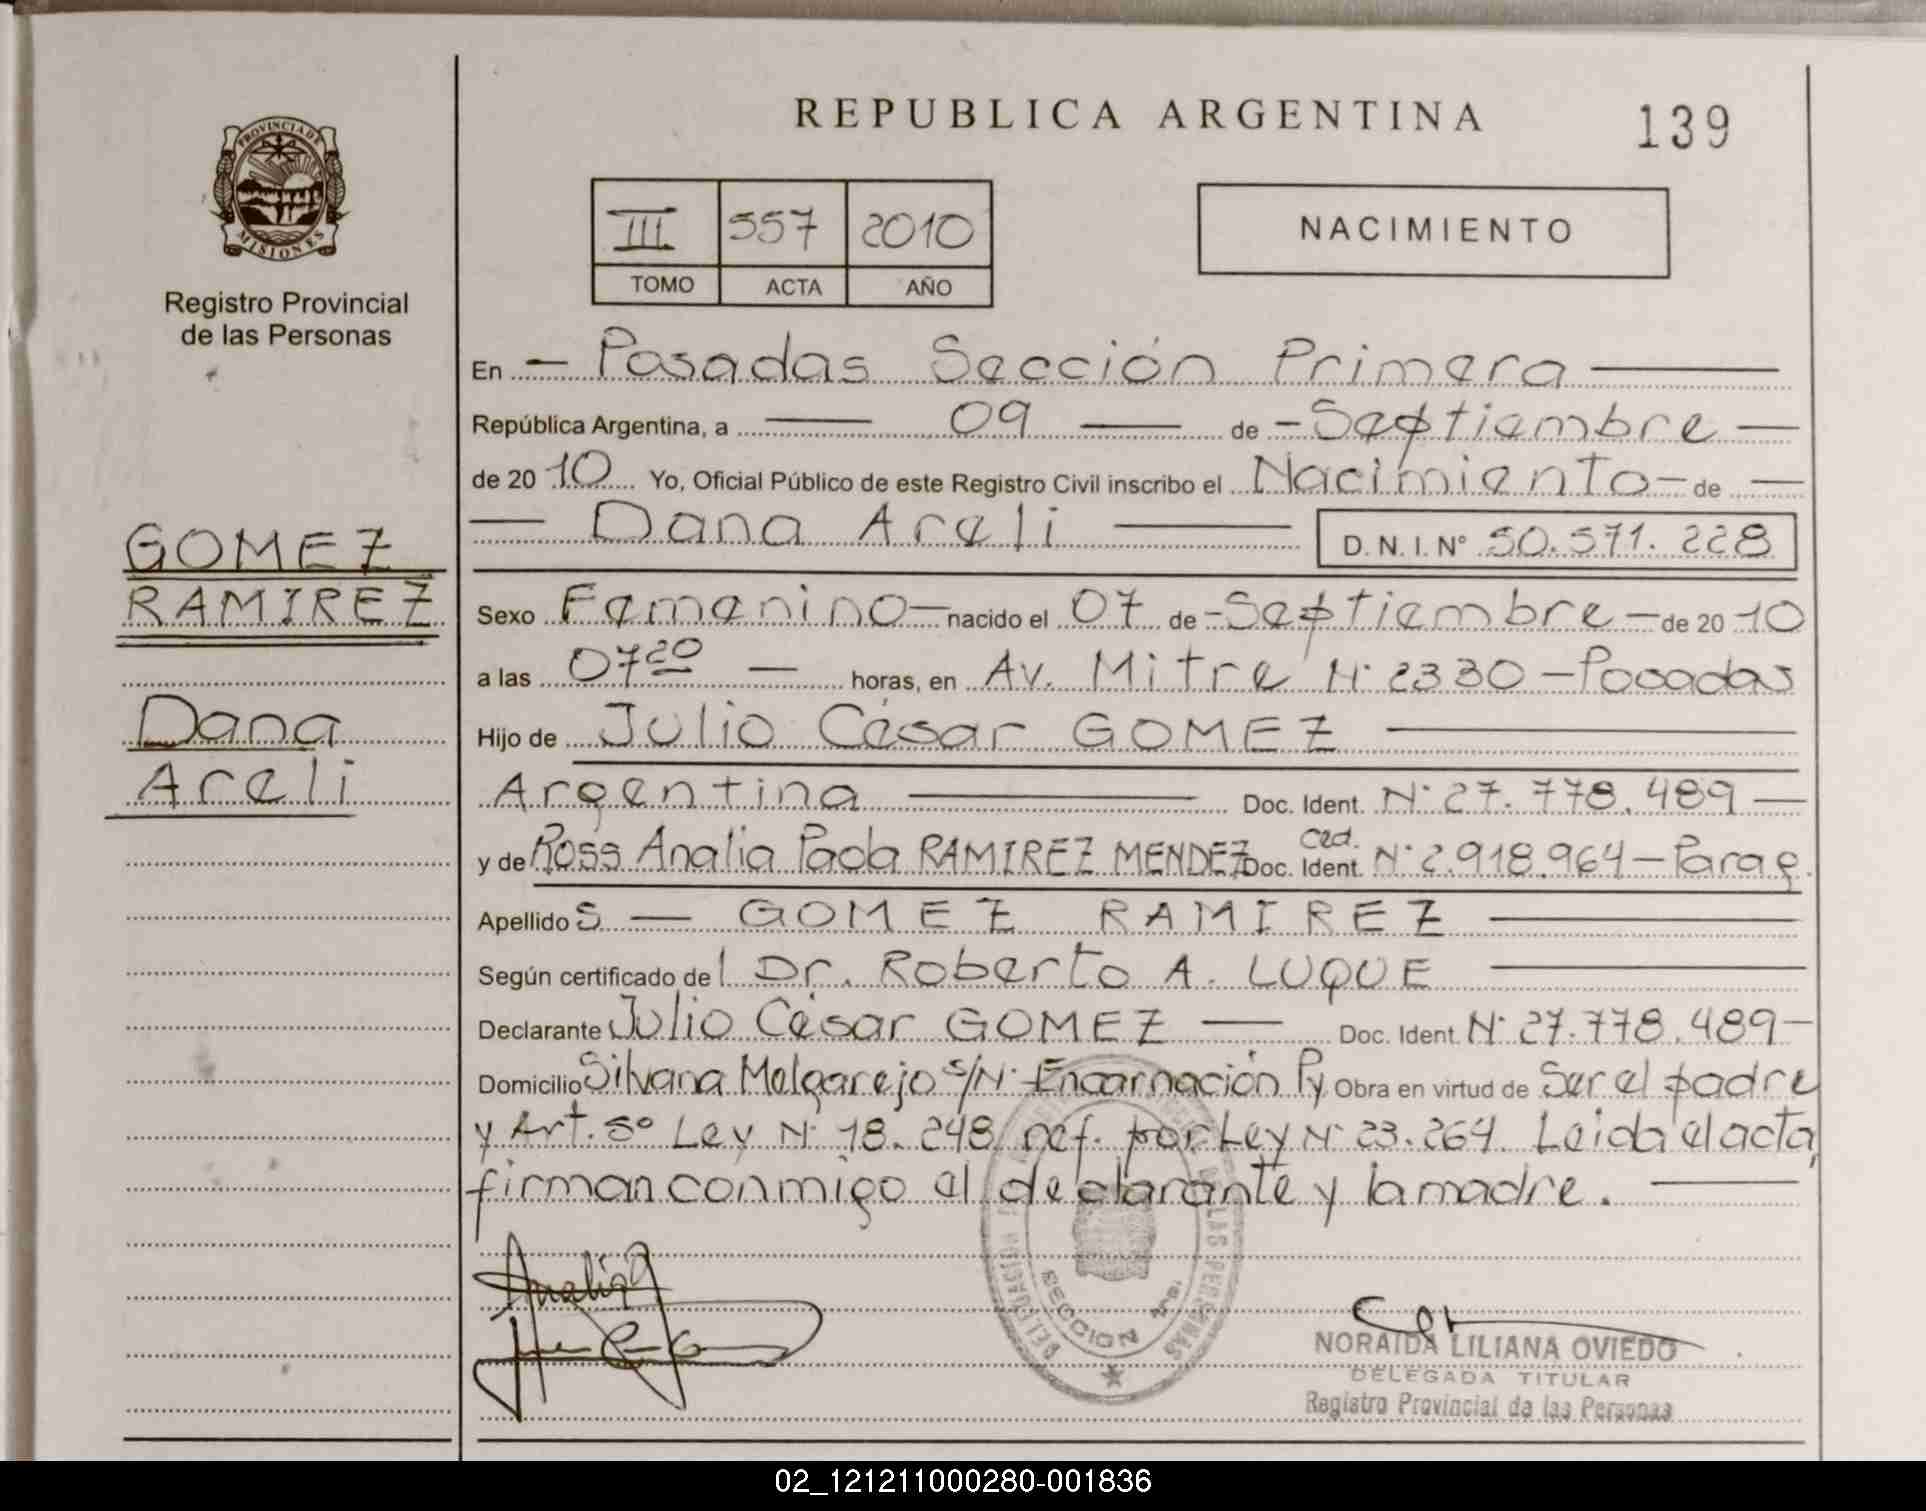 REPUBLICA ARGENTINA
139
PROVINCIA DE
MISIONES
Registro Provincial
de las Personas
III 557 2010
TOMO ACTA AÑO
NACIMIENTO
En Posadas Sección Primera
República Argentina, a 09 de Septiembre
de 2010 Yo, Oficial Público de este Registro Civil inscribo el Nacimiento de
Dana Areli D.N.I. Nº 50.571.228
GOMEZ
RAMIREZ
Dana
Areli
Sexo Femenino nacido el 07 de Septiembre de 2010
a las 07 20 horas, en Av. Mitre Nº 2330 - Posadas
Hijo de Julio César GOMEZ
Argentina Doc. Ident. Nº 27.778.489
y de Ross Analia Paola RAMIREZ MENDEZ Ced. Doc. Ident. Nº 2.918.964 - Parag.
Apellido s GOMEZ RAMIREZ
Según certificado del Dr. Roberto A. LUQUE
Declarante Julio César GOMEZ Doc. Ident. Nº 27.778.489
Domicilio Silvana Melgarejo s/Nº Encarnación Py Obra en virtud de Ser el padre
y Art. 5º Ley Nº 18.248 ref. por Ley Nº 23.264. Leida el acta,
firman conmigo el declarante y la madre.
Analia
DE LAS PERSONAS
SECCION 1ra.
NORAIDA LILIANA OVIEDO
DELEGADA TITULAR
Registro Provincial de las Personas
02_121211000280-001836